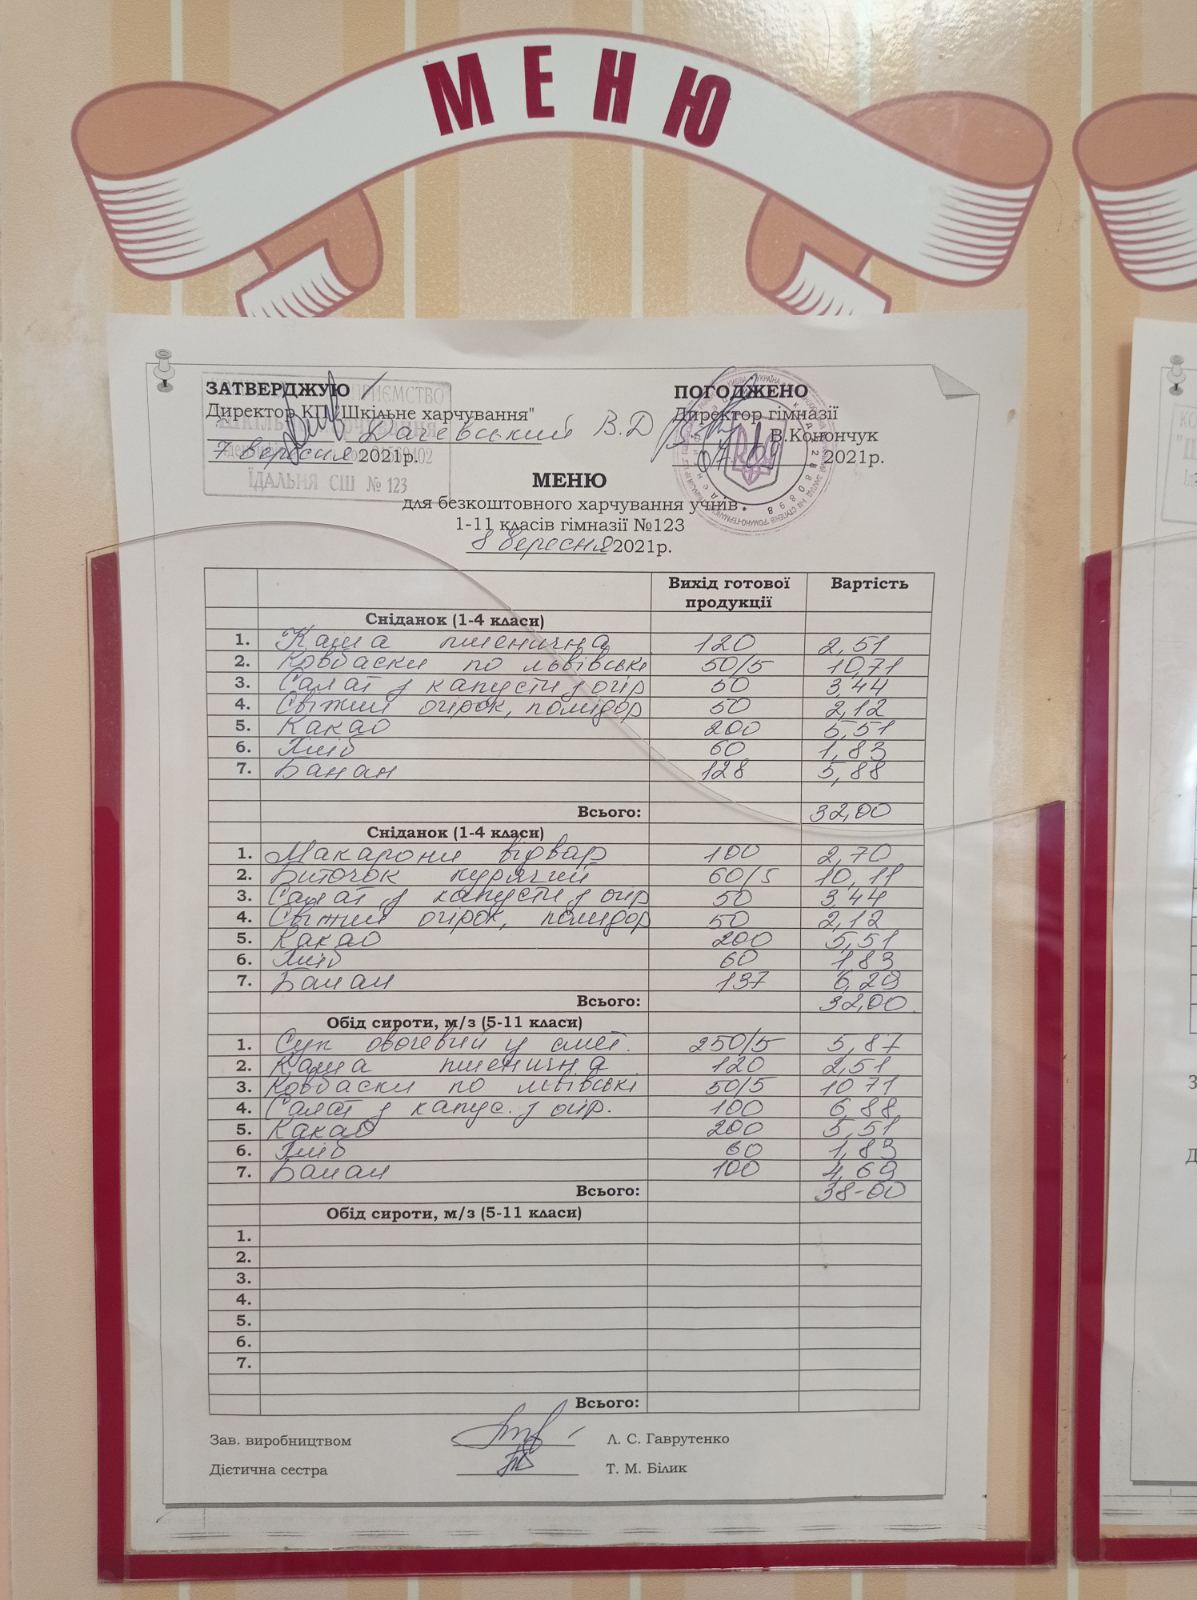 МЕНЮ
ЗАТВЕРДЖУЮ
Директор КП "Шкільне харчування"
Дачевський В.Д
7 вересня 2021р.
ЇДАЛЬНЯ СШ № 123
ПОГОДЖЕНО
Директор гімназії
В.Конончук
07.09 2021р.
МЕНЮ
для безкоштовного харчування учнів
1-11 класів гімназії №123
8 Вересня 2021р.
Вихід готової продукції Вартість
Сніданок (1-4 класи)
1. Каша пшенична 120 2,51
2. Ковбаски по львівські 50/5 10,71
3. Салат з капусти з огір 50 3,44
4. Свіжий огірок, помідор 50 2,12
5. Какао 200 5,51
6. Хліб 60 1,83
7. Банан 128 5,88
Всього: 32,00
Сніданок (1-4 класи)
1. Макарони відвар 100 2,70
2. Биточок курячий 60/5 10,11
3. Салат з капусти з огір 50 3,44
4. Свіжий огірок, помідор 50 2,12
5. Какао 200 5,51
6. Хліб 60 1,83
7. Банан 137 6,29
Всього: 32,00
Обід сироти, м/з (5-11 класи)
1. Суп овочевий у смет. 250/5 5,87
2. Каша пшенична 120 2,51
3. Ковбаски по львівські 50/5 10 71
4. Салат з капус. з огір. 100 6,88
5. Какао 200 5,51
6. Хліб 60 1,83
7. Банан 100 4,69
Всього: 38-00
Обід сироти, м/з (5-11 класи)
1.
2.
3.
4.
5.
6.
7.
Всього:
Зав. виробництвом Л. С. Гаврутенко
Дієтична сестра Т. М. Білик